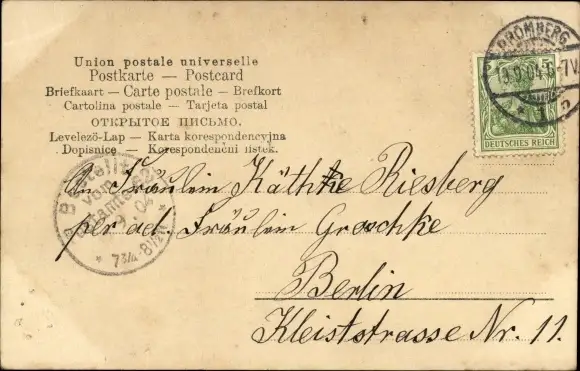 Union postale universelle
Postkarte — Postcard
Briefkaart — Carte postale — Brefkort
Cartolina postale — Tarjeta postal
ОТКРЫТОЕ ПИСЬМО.
Levelező-Lap — Karta korespondencyjna
Dopisnice — Korespondenční lístek.
BROMBERG
9.04.6-7V.
5
DEUTSCHES REICH
Bestellt
vom
Postamte
9. 04
7 3/4-8 1/2 N
An Fräulein Käthe Riesberg
per ad. Fräulein Groschke
Berlin
Kleiststrasse Nr. 11.